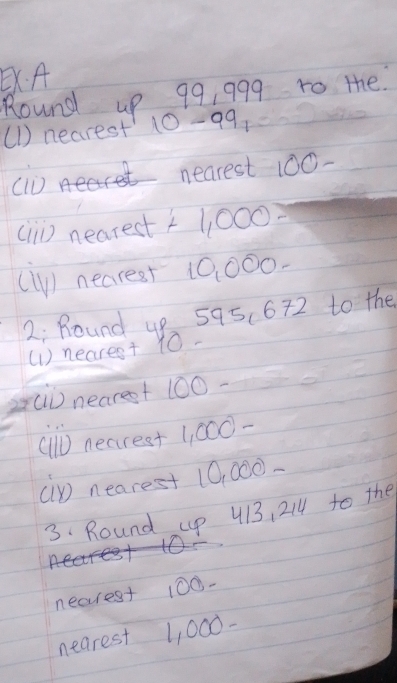 EX.A
Round up 99,999 to the.
(i) nearest 10 - 99,
(ii) nearet nearest 100 -
(iii) nearest 1,000 -
(iv) nearest 10,000 -
2; Round up 595,672 to the
(i) nearest 10 -
(ii) nearest 100 -
(iii) nearest 1,000 -
(iv) nearest 10,000 -
3. Round up 413,214 to the
nearest 10 -
nearest 100 -
nearest 1,000 -